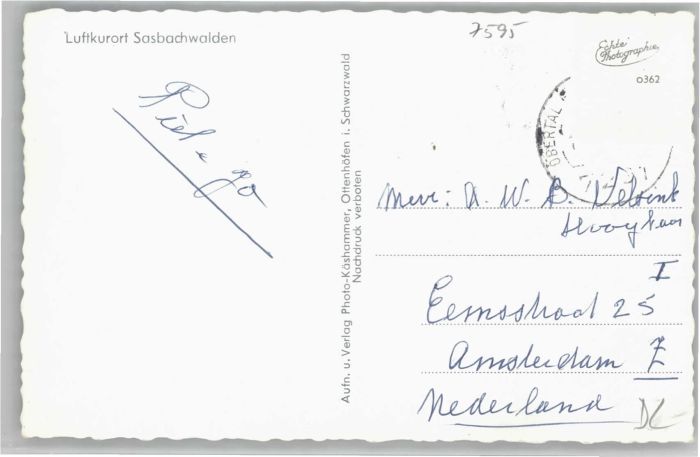 Luftkurort Sasbachwalden
7595
Echte Photographie
0362
OBERTAL
Piet & Jo
Mevr: A. W. B. Velsink
Hooghaar
I
Eemsstraat 25
Amsterdam Z
Nederland
DL
Aufn. u. Verlag Photo-Käshammer, Ottenhöfen i. Schwarzwald
Nachdruck verboten